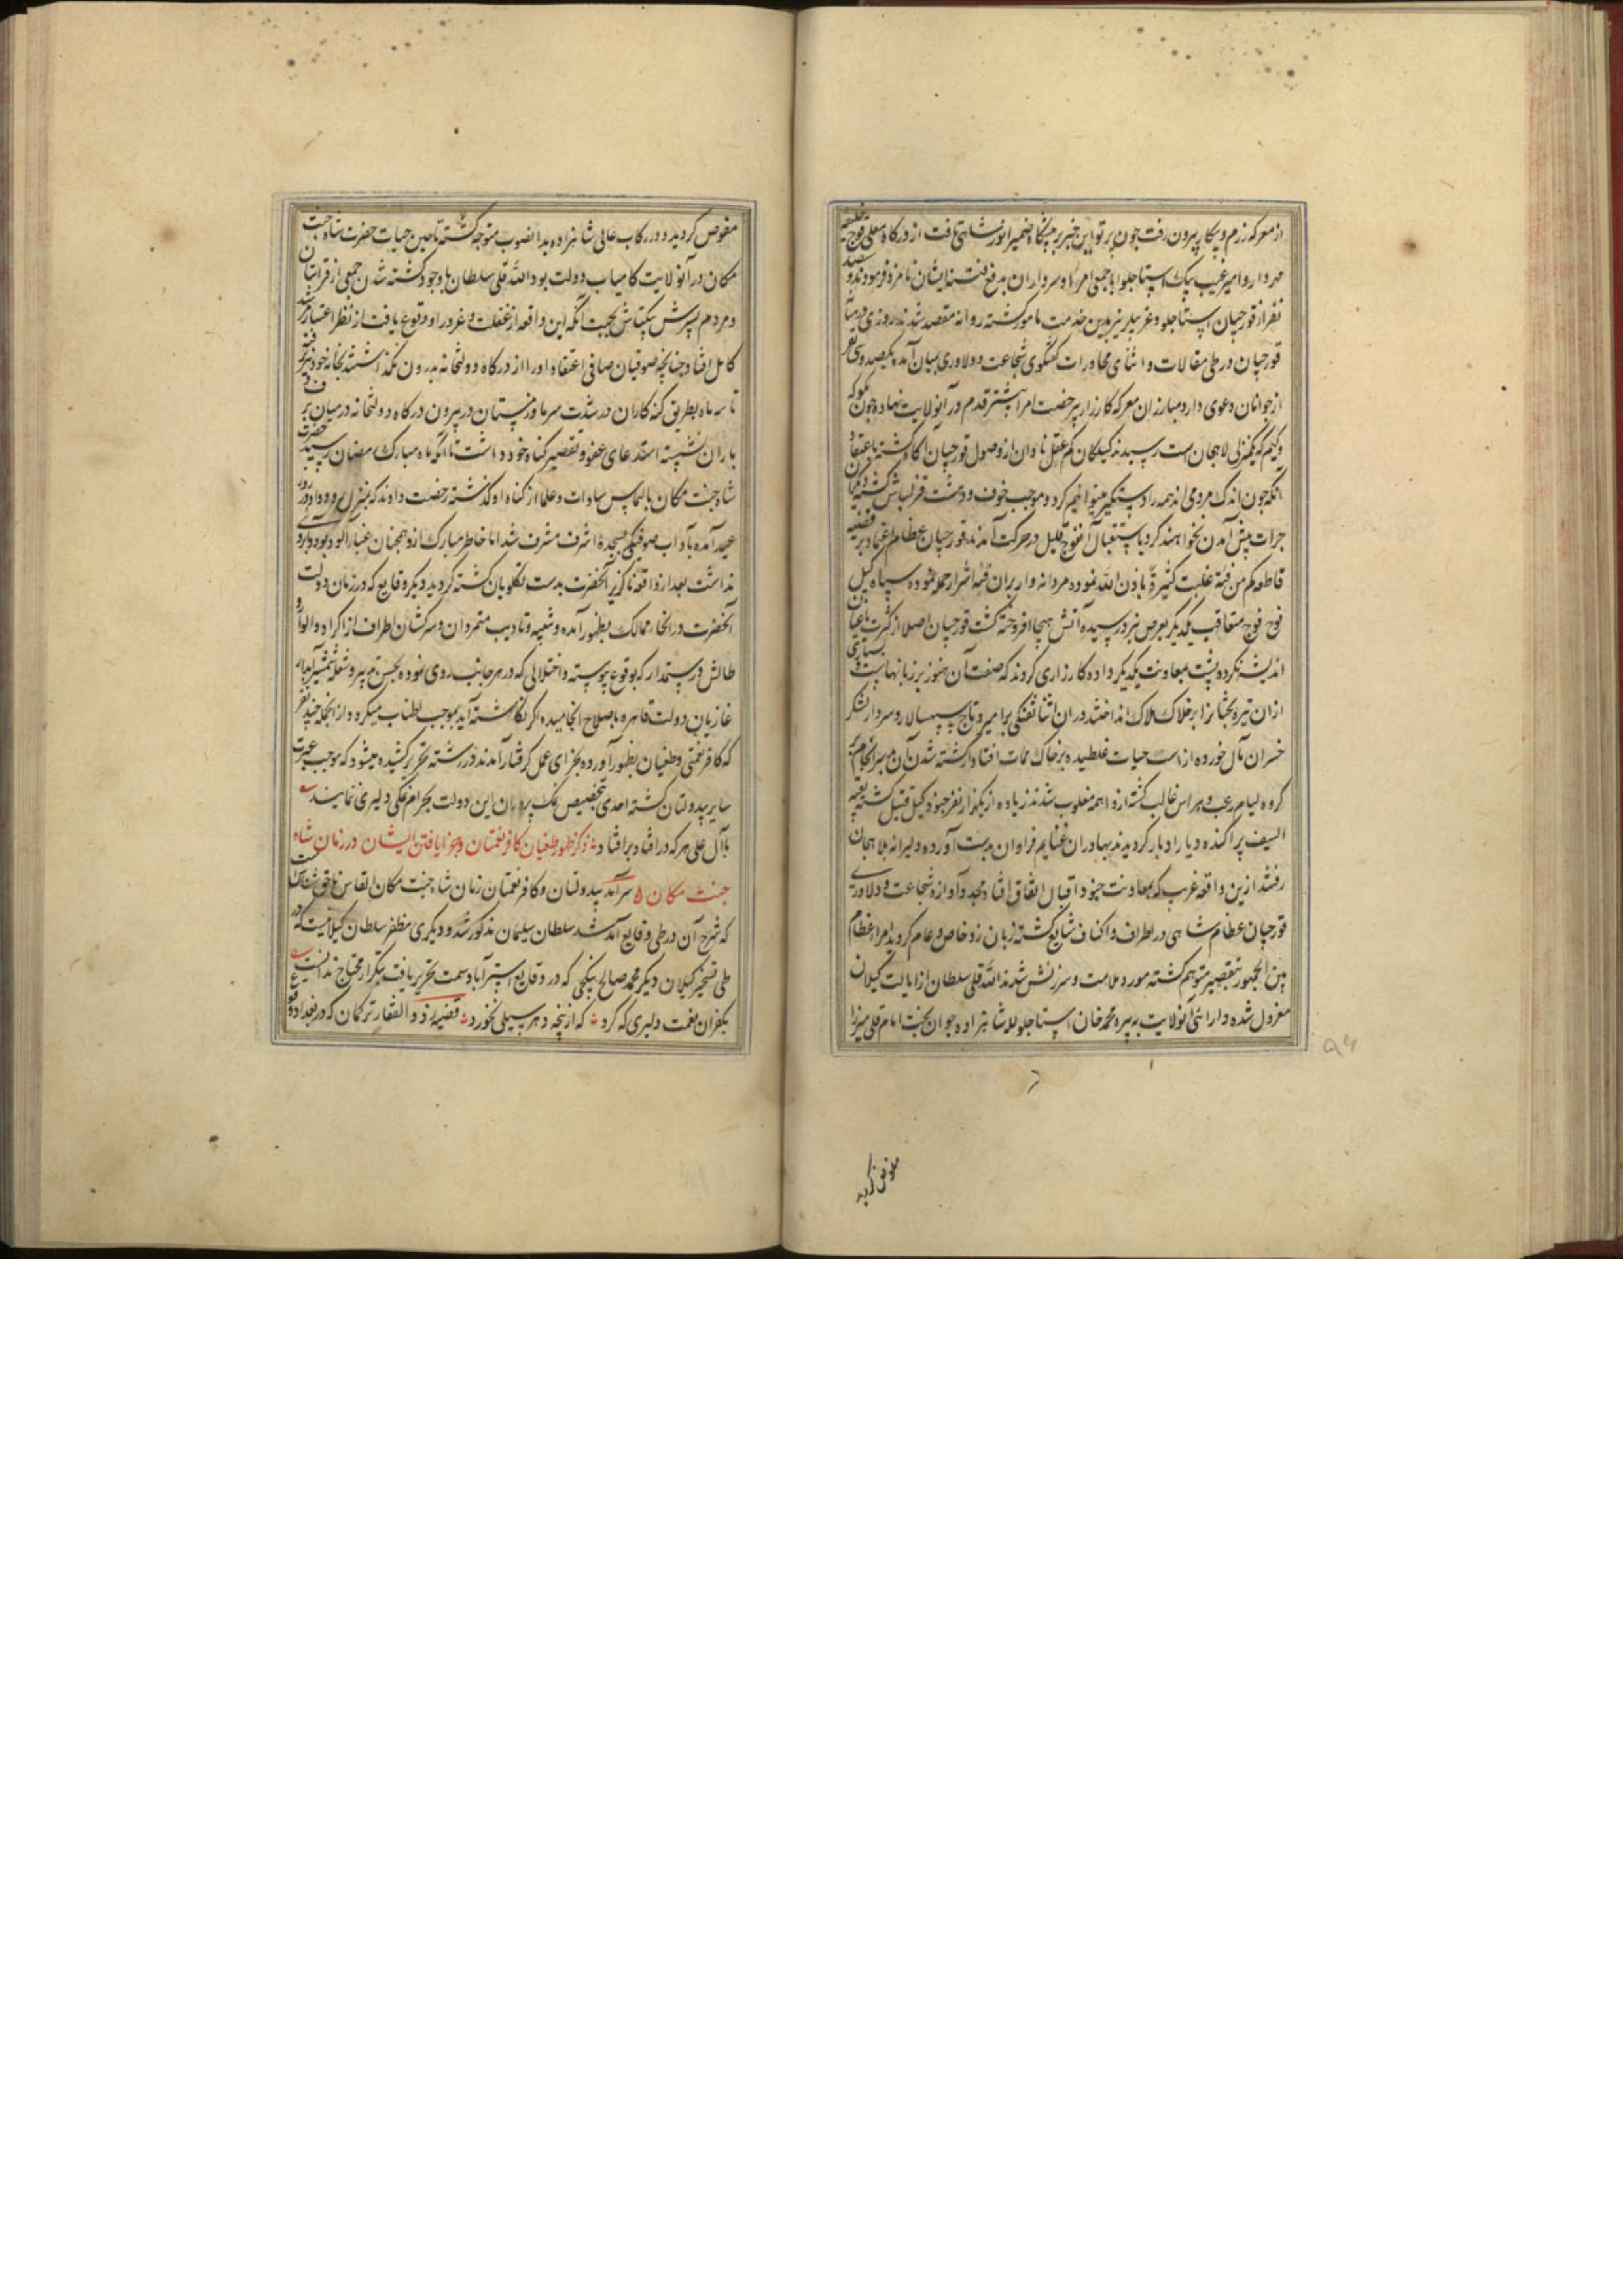 از معرکه رزم و پیکار بیرون رفت چون پرتو این خبر بر پیشگاه ضمیر انور شاهی تافت از درگاه معلی قوج خلیفه
مهردار و امیر غیب بیک استاجلو با جمعی امرا و سرداران بدفع فتنه ایشان نامزد فرمودند و سیصد
نفر از قورچیان استاجلو و غیره نیز بدین خدمت مامور گشته روانه مقصد شدند روزی در میان
قورچیان در طی مقالات و اثنای محاورات گفتگوی شجاعت و دلاوری بمیان آمده یکصد و سی نفر
از جوانان دعوی دار و مبارزان معرکه کارزار بیرخصت امرا پیشتر قدم در آنولایت نهاده چون بکوکه
و کیم که یکمنزلی لاهجان است رسیدند گیلکان کم عقل نادان از وصول قورچیان آگاه گشته باعتقاد
آنکه چون اندک مردمی اند همه را دستگیر میتوانیم کرد و موجب خوف و دهشت قزلباش گشته دیگران
جرات پیش آمدن نخواهند کرد باستقبال آن فوج قلیل در حرکت آمدند قورچیان عظام اعتماد بر قضیه
قاطعه کم من فئة غلبت کثیرة باذن الله نموده مردانه وار بران فئه اشرار حمله نموده سپاه گیل
فوج فوج متعاقب یکدیگر بعرض نبرد رسیده آتش هیجا افروخته گشت قورچیان اصلا از کثرت یاغیان
اندیشه نکرده پشت بمعاونت یکدیگر داده کارزاری کردند که صفت آن هنوز بر زبانهاست و بسیاری
ازان تیره بختانرا بر خاک هلاک انداختند دران اثنا تفنگی برامیره وتاج سپهسالار و سردار لشکر
خسران مآل خورده از اسب حیات غلطیده بر خاک ممات افتاد از کشته شدن آن بد سرانجام
گروه لیام رعب و هراس غالب گشته از واهمه مغلوب شدند زیاده از یکهزار نفر جنود گیل قتیل گشته بقیة
السیف پراکنده دیار ادبار گردیدند بهادران غنایم فراوان بدست آورده دلیرانه بلاهجان
رفتند ازین واقعه غریب که بمعاونت جنود اقبال اتفاق افتاد مجدد آوازه شجاعت و دلاوری
قورچیان عظام شاهی در اطراف و اکناف شایع گشته زبان زد خاص و عام گردید امراء عظام
بین الجمهور بتقصیر متوهم گشته مورد ملامت و سرزنش شدند الله قلی سلطان از ایالت گیلان
معزول شده دارائی آنولایت به پیره محمد خان استاجلو للـه شاهزاده جوان بخت امام قلی میرزا
مفوض گردید
مفوض گردید و در رکاب عالی شاهزاده بدانصوب متوجه گشته تا حین حیات حضرت شاه جنت
مکان در آنولایت کامیاب دولت بود الله قلی سلطان با وجود کشته شدن جمعی از قرابتان
و مردم پسرش بکتاش بجهت آنکه این واقعه از غفلت و غرور او وقوع یافت از نظر اعتبار مرشد
کامل افتاد چنانچه صوفیان صافی اعتقاد او را از درگاه دولتخانه بدرون نگذاشتند بخانه خود نیز نرفته
تا سه ماه بطریق گنه کاران در شدت سرما و زمستان در بیرون درگاه دولتخانه در میان برف و
باران نشسته استدعای عفو و تقصیر گناه خود داشت تا آنکه ماه مبارک رمضان رسید حضرت
شاه جنت مکان بالتماس سادات و علما از گناه او گذشته رخصت دادند که بمنزل رود و او در روز
عید آمده بآداب صوفیگری بسجده اشرف مشرف شد اما خاطر مبارک ازو همچنان غبارآلود بود و بارو[ی]
نداشت بعد از واقعه ناگزیر آنحضرت بدست تکلویان کشته گردید و دیگر وقایع که در زمان دولت
آنحضرت در انحاء ممالک بظهور آمده و تنبیه و تادیب متمردان و سرکشان اطراف از اکراد و الوار و
طالش و رستمدار که بوقوع پیوسته و اختلالی که در هر جانب روی نموده بحسن تدبیر و شعله شمشیر آبدار
غازیان دولت قاهره باصلاح انجامیده اگر نگاشته آید بموجب اطناب میگردد از انجمله چند نفر
که کافر نعمتی و طغیان بظهور آورده بجزای عمل گرفتار آمدند در رشته تحریر کشیده میشود که موجب عبرت
سایر بیدولتان گشته احدی بتخصیص نمک پروران این دولت بحرام نمکی دلیری ننمایند
با آل علی هر که در افتاد بر افتاد ذکر ظهور طغیان کافر نعمتان و جزا یافتن ایشان در زمان شاه
جنت مکان سرآمد بیدولتان و کافر نعمتان زمان شاه جنت مکان القاس ناحق شناس است
که شرح آن در طی وقایع آمد شد سلطان سلیمان مذکور شد و دیگری مظفر سلطان گیلانیست که در
طی تسخیر گیلان و دیگر محمد صالح بیتکچی که در وقایع استرآباد سمت تحریر یافت بتکرار محتاج نیست
بکفران نعمت دلیری که کرد که از پنجه دهر سیلی نخورد قضیه ذو الفقار ترکمان که در بغداد وقوع